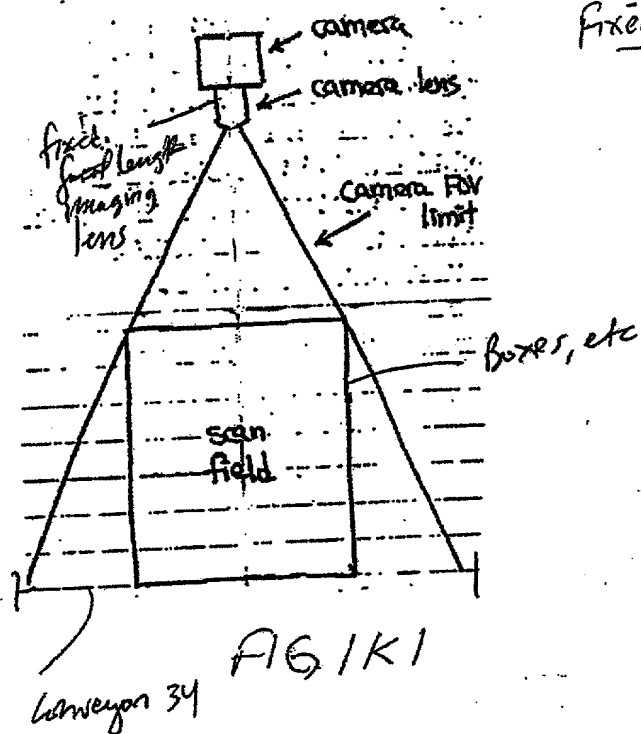 Fixe
camera
camera lens
fixed
focal length
imaging
lens
camera FOV
limit
Boxes, etc
scan
field
FIG 1K1
Conveyor 34